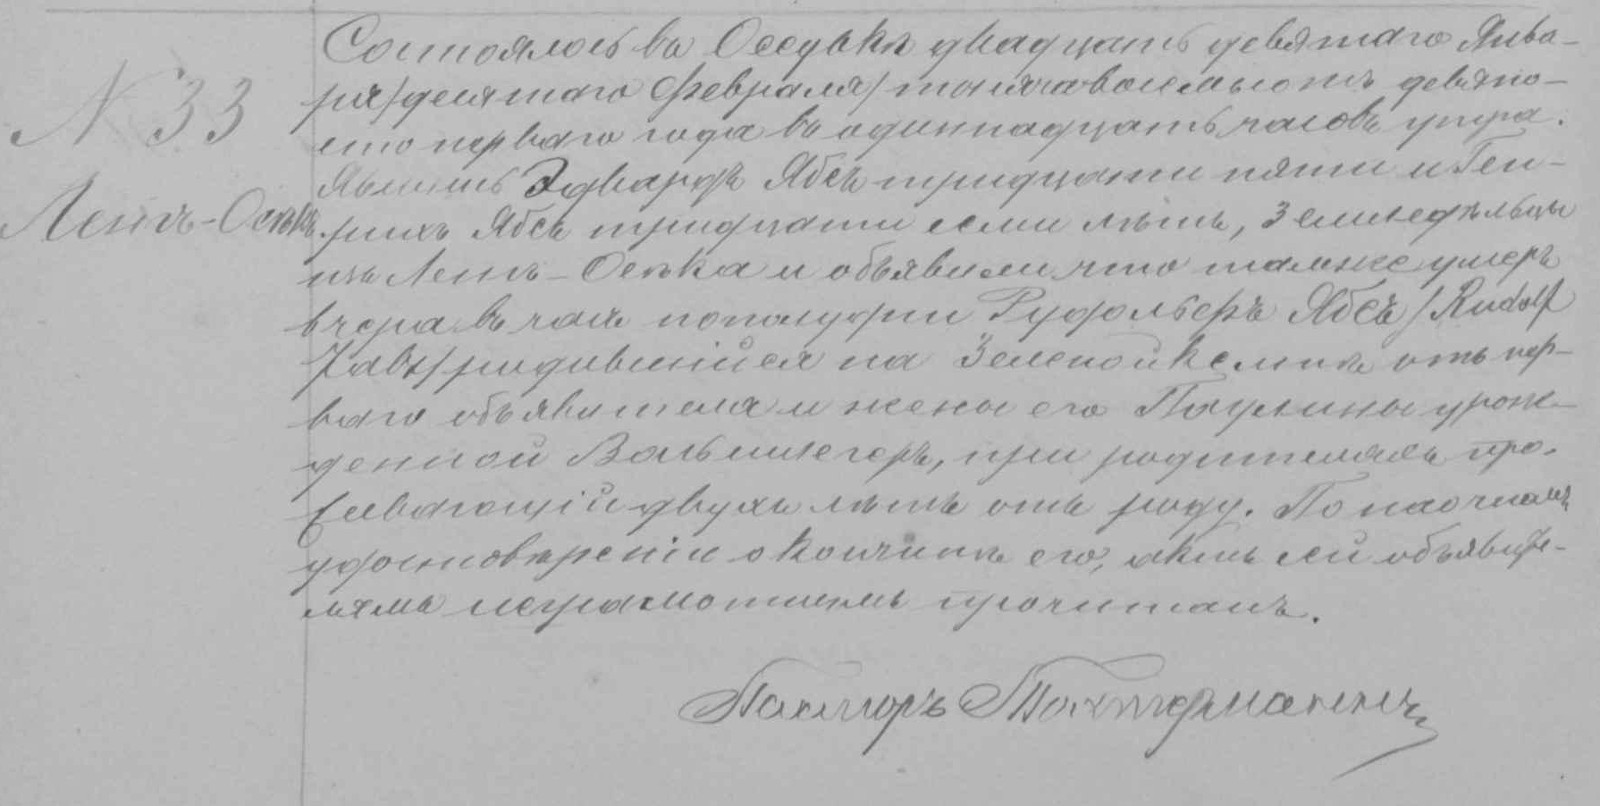 № 33
Ленъ-Оська
Состоялось въ Осувкѣ двадцать девятаго Янва-
ря/десятаго Февраля/ тысяча восемьсотъ девяно-
сто перваго года въ одиннадцать часовъ утра.
Явились Эдвардъ Ябсъ тридцати пяти и Ген-
рихъ Ябсъ тридцати семи лѣтъ, земледѣльцы
изъ Ленъ-Оська и объявили что тамже умеръ
вчера въ часъ пополудни Рудольфъ Ябсъ /Rudolf
Jabs/ родившійся на Зеленой Кемпѣ отъ пер-
ваго объявителя и жены его Паулины урож-
денной Вальшлегеръ, при родителяхъ про-
живающій двухъ лѣтъ отъ роду. По наочномъ
удостовѣреніи о кончинѣ его, актъ сей объявите-
лямъ неграмотнымъ прочитанъ.
Пасторъ